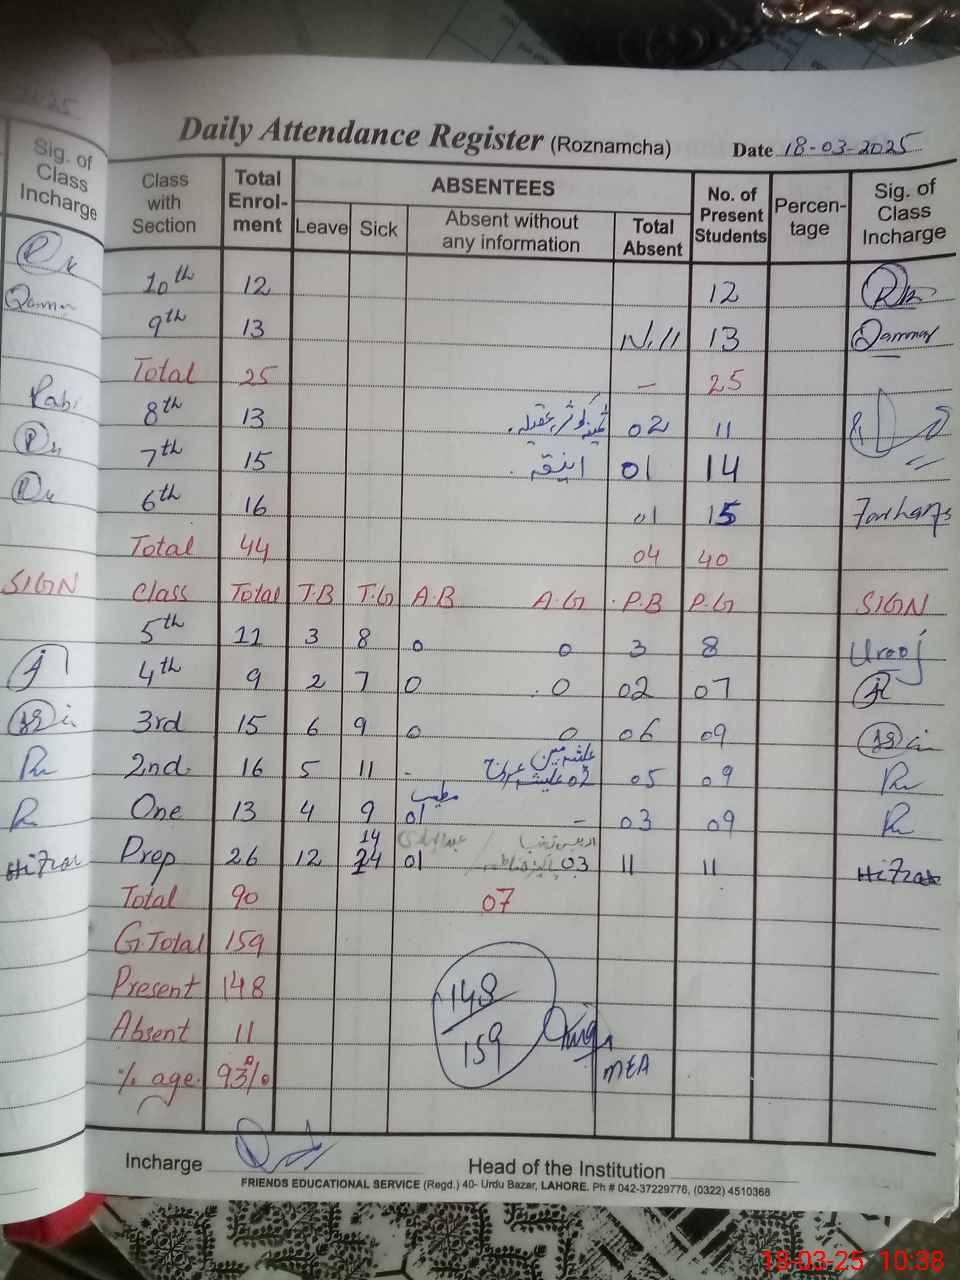 Daily Attendance Register (Roznamcha) Date 18-03-2025
Sig. of Class Incharge
Class with Section Total Enrol-ment ABSENTEES Leave Sick Absent without any information Total Absent No. of Present Students Percen-tage Sig. of Class Incharge
10th 12 12
9th 13 Nill 13 Qammar
Total 25 - 25
8th 13 ثمینہ کوثر، عقیلہ 02 11
7th 15 انیقہ 01 14
6th 16 01 15
Total 44 04 40
SIGN Class Total T.B T.G A.B A.G P.B P.G SIGN
5th 11 3 8 0 0 3 8 Urooj
4th 9 2 7 0 0 02 07
3rd 15 6 9 0 0 06 09
2nd 16 5 11 - 02 05 09
One 13 4 9 01 - 03 09
Prep 26 12 14 01 03 11 11
Total 90 07
G Total 159
Present 148
Absent 11
% age 93%
148
159
MEA
Incharge Head of the Institution
FRIENDS EDUCATIONAL SERVICE (Regd.) 40- Urdu Bazar, LAHORE. Ph # 042-37229776, (0322) 4510368
18-03-25 10:38